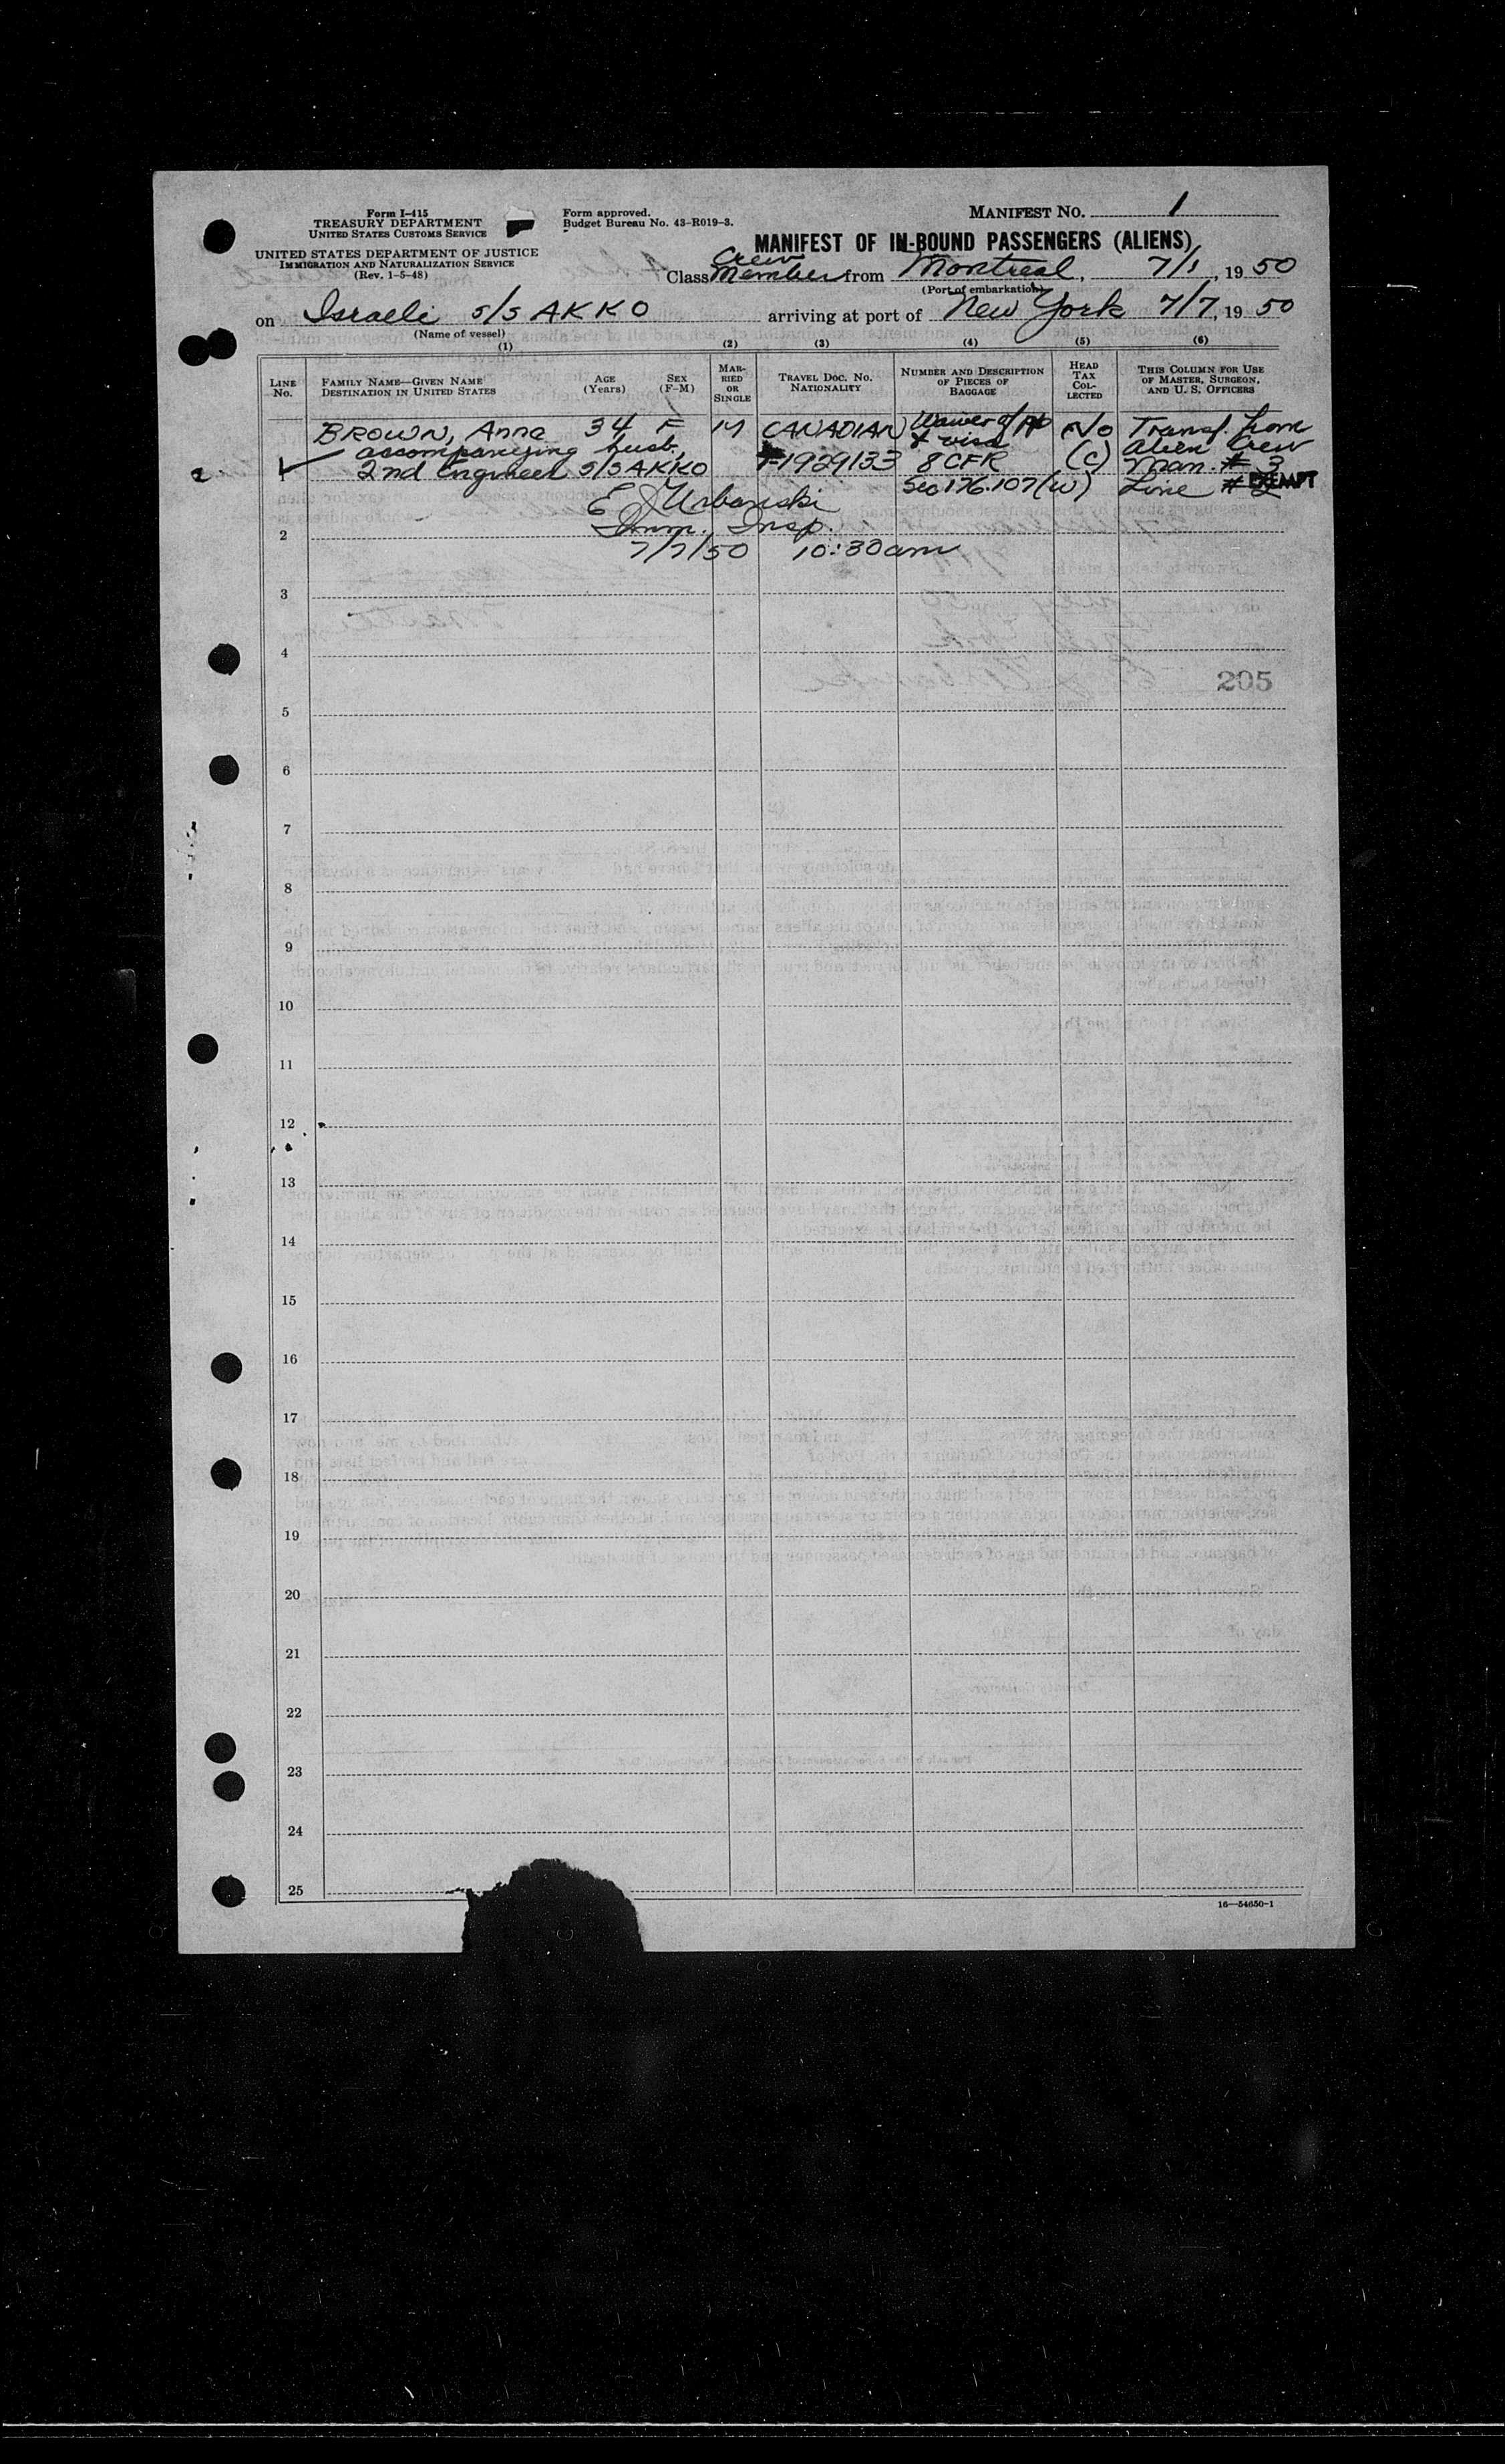 Form I-415
TREASURY DEPARTMENT
UNITED STATES CUSTOMS SERVICE
UNITED STATES DEPARTMENT OF JUSTICE
IMMIGRATION AND NATURALIZATION SERVICE
(Rev. 1-5-48)
Form approved.
Budget Bureau No. 43-R019-3.
MANIFEST NO. 1
MANIFEST OF IN-BOUND PASSENGERS (ALIENS)
Class Crew Member from Montreal, 7/1, 19 50
(Port of embarkation)
on Israeli S/S AKKO arriving at port of New York 7/7, 19 50
(Name of vessel)
(1) (2) (3) (4) (5) (6)
LINE No. FAMILY NAME—GIVEN NAME DESTINATION IN UNITED STATES AGE (Years) SEX (F-M) MARRIED OR SINGLE TRAVEL DOC. NO. NATIONALITY NUMBER AND DESCRIPTION OF PIECES OF BAGGAGE HEAD TAX COLLECTED THIS COLUMN FOR USE OF MASTER, SURGEON, AND U. S. OFFICERS
BROWN, Anna 34 F M CANADIAN Waiver of PP No Transf. from
accompanying husb, & visa Alien Crew
1 2nd Engineer S/S AKKO 1929133 8 CFR (C) Man. # 3
Sec 176.107(w) Line # EXEMPT
E J Urbanski
Imm. Insp.
2 7/7/50 10:30am
3
4
205
5
6
7
8
9
10
11
12
13
14
15
16
17
18
19
20
21
22
23
24
25
16—54650-1